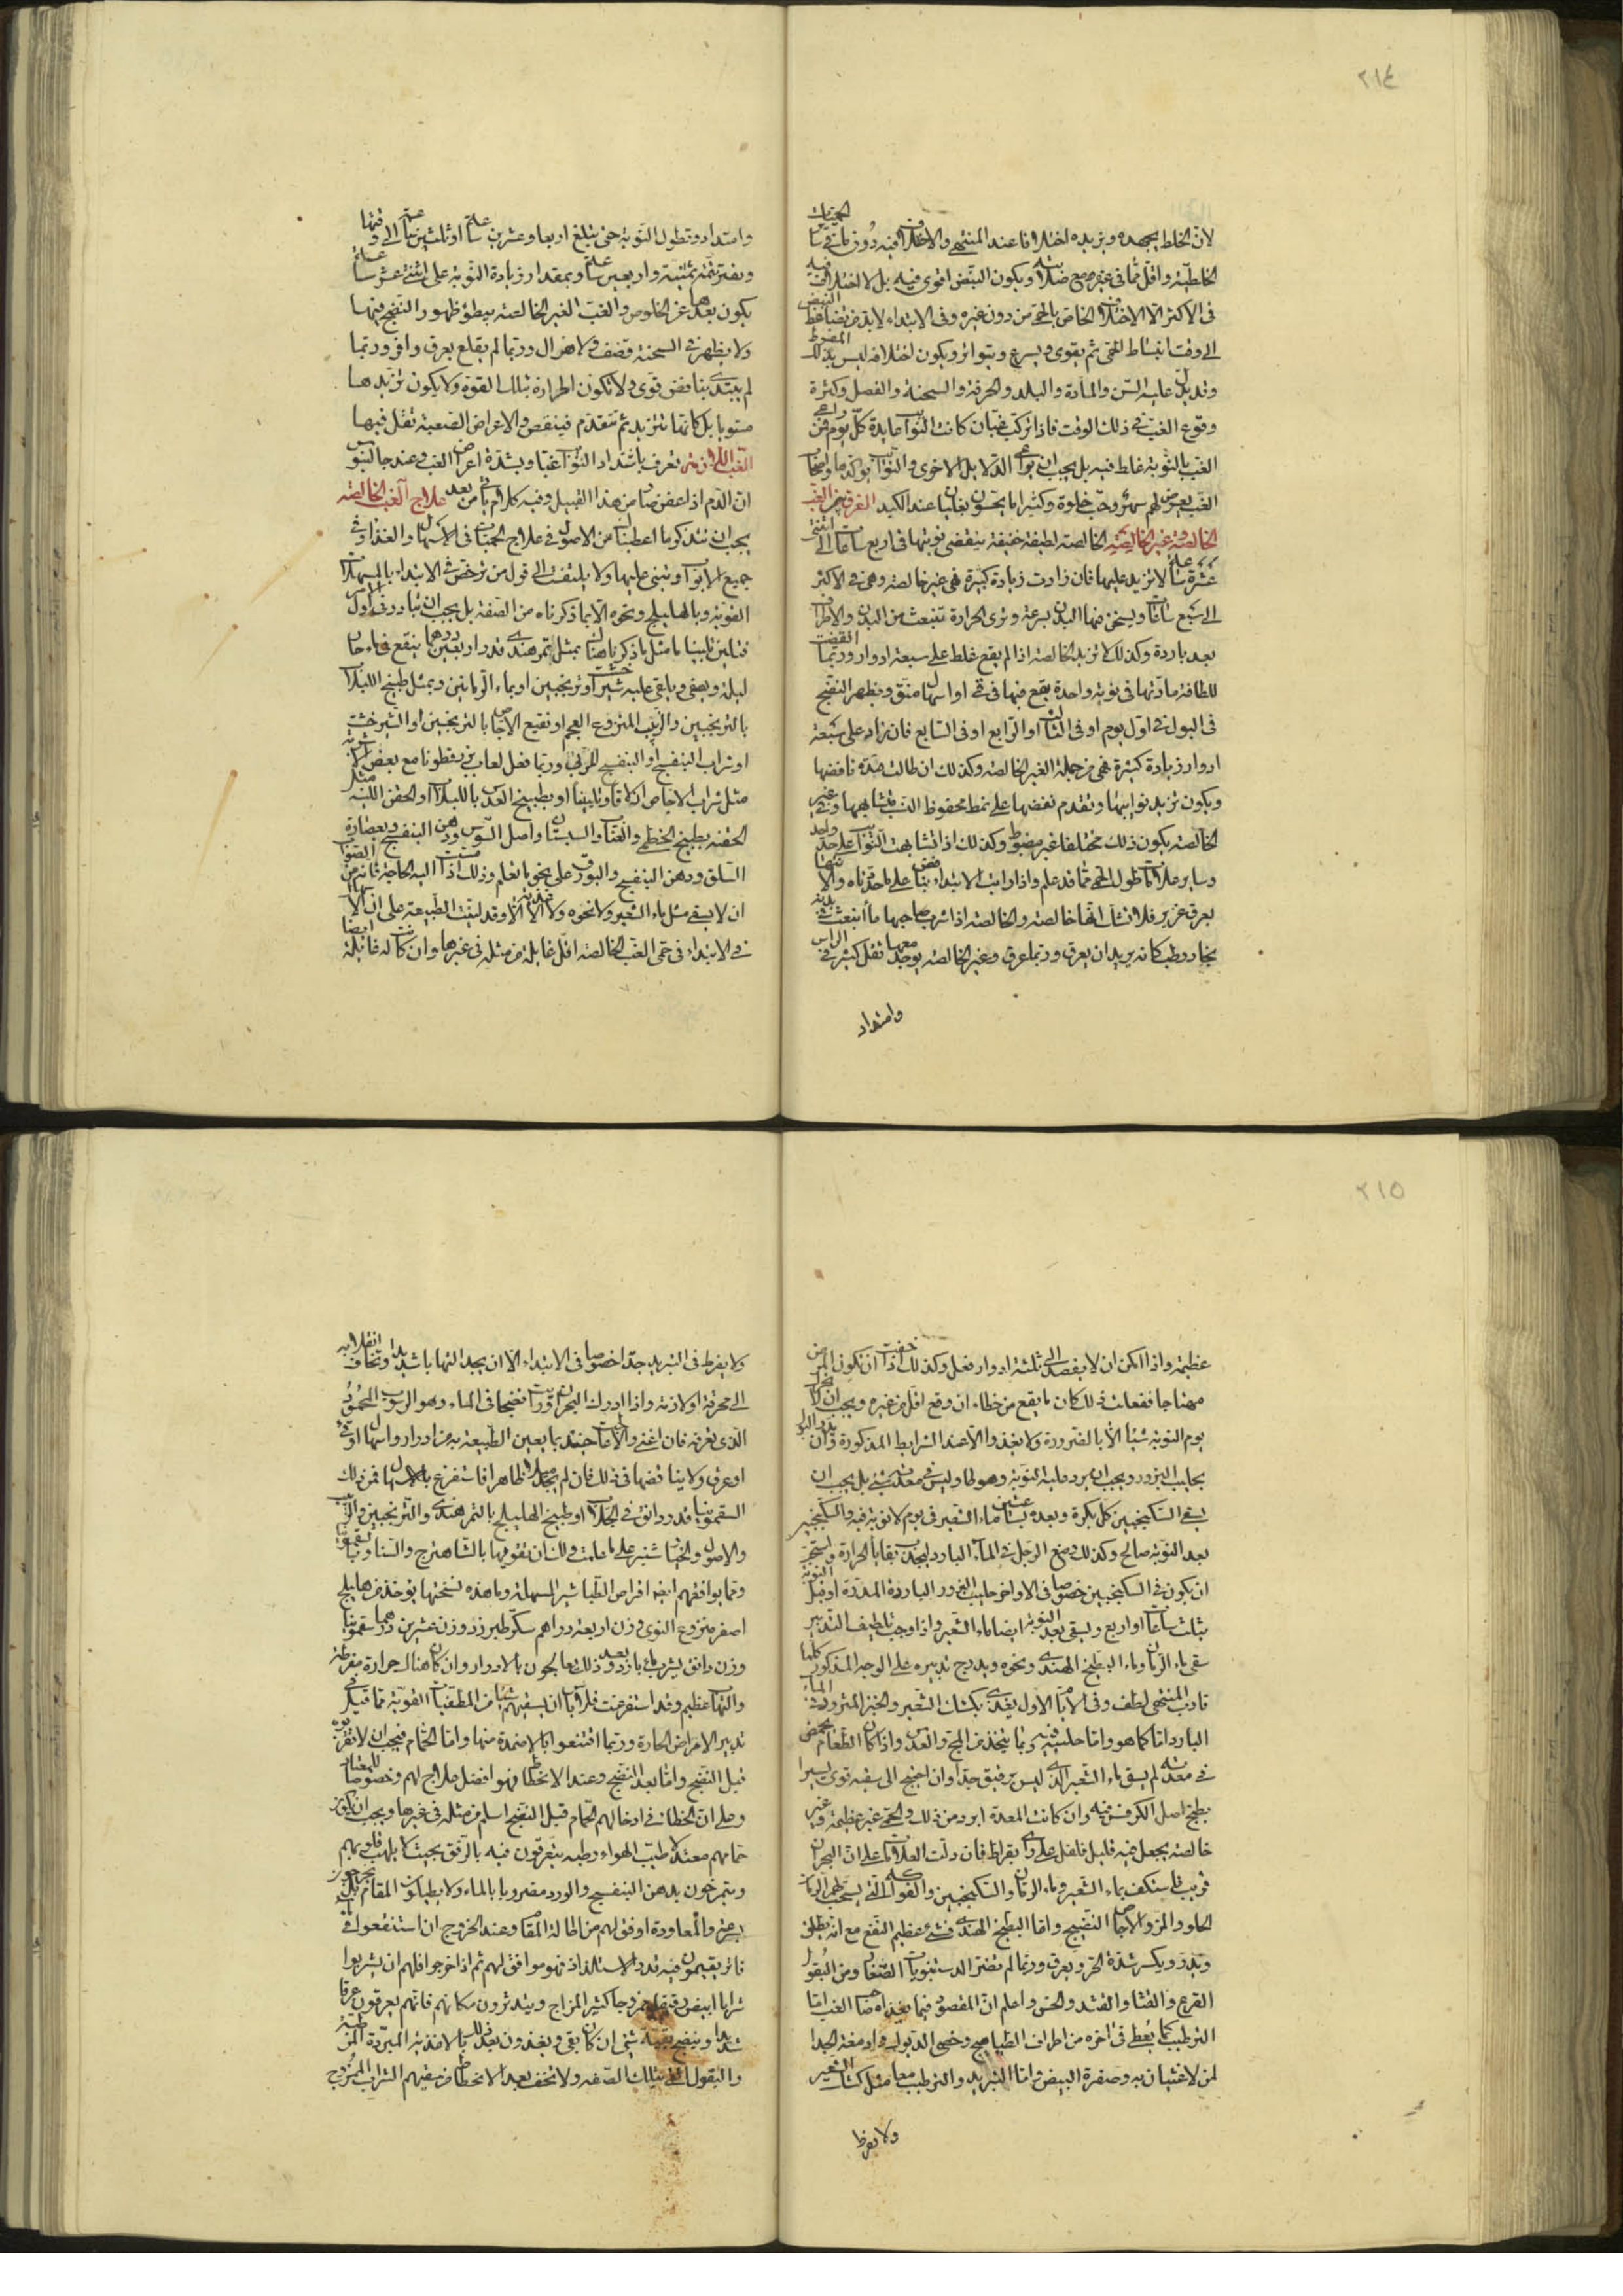 ٢١٤
لان الخلط يجهده ويزيده اختلافا عند المنتهى والاختلاف فيه دون ما في سائر الحميات
الخلطية واقل مما في غيره مع صلابته ويكون النبض اقوى فيه بل لا اختلاف فيه
فى الاكثر الا الاختلاف الخاص بالحمى من دون غيره وفى الابتداء لا بد من تضاغط النبض
الى وقت انبساط الحمى ثم يقوى ويسرع ويتواتر ويكون اختلافه ليس بذلك المفرط
وقد يدل عليه السن والمادة والبلد والحرفة والسحنة والفصل وكثرة
وقوع الغب في ذلك الوقت فاذا تركب غبان كانت النوائب عايدة كل يوم فمن راعى
الغب بالنوبة غلط فيه بل يجب ان يراعى الدلايل الاخرى والنوائب يؤكدها واصحاب
الغب يعرض لهم سهر وحب خلوة وكثيرا ما يحسون بغليان عند الكبد الفرق بين الغب
الخالصة وغير الخالصة الخالصة لطيفة خفيفة ينقضى نوبتها فى اربع ساعات الى اثنتى
عشرة ساعة لا تزيد عليها فان زادت زيادة كثيرة فهى غير خالصة وهى في الاكثر
الى سبع ساعات ويسخن فيها البدن بسرعة وترى الحرارة تنبعث من البدن والاطراف
بعد باردة وكذلك لا تزيد الخالصة اذا لم يقع غلط على سبعة ادوار وربما انقضت
للطافة مادتها فى نوبة واحدة يقع فيها قئ او اسهال منق ويظهر النضج
فى البول في اول يوم او فى الثالث او الرابع او فى السابع فان زاد على سبعة
ادوار زيادة كثيرة فهى من جملة الغير الخالصة وكذلك ان طالت مدة نافضها
ويكون تزيد نوايبها وتقدم نفضها على نمط محفوظ النسب متشابهها وفى غير
الخالصة يكون ذلك مختلفا غير مضبوط وكذلك اذا تشابهت النوائب على حد واحد
وساير علامات طول الحمى مما قد علم واذا رايت الابتداء بنافض على ما حددناه والانتهاء
بعرق غزير فلا تشك انها خالصة والخالصة اذا شرب صاحبها ماء انبعث من بدنه
بخار رطب كانه يريد ان يعرق وربما عرق وغير الخالصة يوجد معها ثقل كثير في الراس
وامتداد
وامتداد وتطول النوبة حتى يبلغ اربعا وعشرين ساعة او ثلثين ساعة الى وقتها
وبفترتها تتمة ثمنية واربعين ساعة وبمقدار زيادة النوبة على اثنتى عشر ساعة
يكون بعدها عن الخلوص والغب الغير الخالصة يبطؤ ظهور النضج فيها
ولا يظهر في السحنة قضف ولا هزال وربما لم يقلع بعرق وافر وربما
لم يبتدئ بنافض قوى ولا تكون الحرارة بتلك القوة ولا يكون تزيدها
مستويا بل كانها تتزيد ثم تتقدم فينقص والاعراض الصعبة تقل فيها
الغب اللازمة تعرف باشتداد النوائب غبا وبشدة اعراض الغب وعند جالينوس
ان الدم اذا عفن صار من هذا القبيل وفيه كلام ياتى من بعد علاج الغب الخالصة
يجب ان نتذكر ما اعطيناه من الاصول في علاج الحميات فى الاسهال والغذاء وفى
جميع الابواب ويبنى عليها ولا يلتفت الى قول من رخص في الابتداء بالمسهلات
القوية وبالهليلج ونحوه الا بما ذكرناه من الصفة بل يجب ان تبادر في اول الامر
فتلين تليينا ما مثل ما ذكرناه هناك بمثل تمر هندى قدر اربعين درهما ينقع فى ماء حار
ليلة ويصفى ويلقى عليه شيرخشت او ترنجبين او بماء الرمانين وبمثل طبيخ اللبلاب
بالترنجبين والزبيب المنزوع العجم او نقيع الاجاص بالترنجبين او الشيرخشت
او شراب البنفسج او البنفسج المربى وربما فعل لعاب بزرقطونا مع بعض الاشربة
مثل شراب الاجاص ازلاقا وتليينا او بطبيخ العدس باللبلاب او الحقن اللينة مثل
الحقنة بطبيخ الخطمى والعناب والسبستان واصل السوس ودهن البنفسج وبعصارة
السلق ودهن البنفسج والبورق على نحو ما تعلم وذلك اذا مست اليه الحاجة فانه من الصواب
ان لا يسقى مثل ماء الشعير ولا نحوه ولا الاغذية الا وقد لينت الطبيعة على ان الاسهال
في الابتداء فى حمى الغب الخالصة اقل غايلة من مثله فى غيرها وان كانت له غايلة ايضا
٢١٥
عظيمة واذا امكن ان لا يفصد الى ثلثة ادوار فعل وكذلك اذا خفت ان تكون المرض
مهتاجا ففعلت ذلك كان ما يقع من خطاء ان وقع اقل من غيره ويجب ان لا تحرك
يوم النوبة شيئا الا بالضرورة ولا يغذوا الا عند الشرايط المذكورة وان يدام البارد
بحليب البزور ويجب ان يرد عليه النوبة وهو خاو ليس في معدته شئ بل يجب ان
يسقى السكنجبين كل بكرة وبعده بساعتين ماء الشعير فى يوم لا نوبة فيه والسكنجبين
بعد النوبة صالح وكذلك وضع الرجل في الماء البارد ليجذب بقايا الحرارة ويستحب
ان يكون في السكنجبين خصوصا فى الاواخر حليب البزور الباردة المدرة او قبل النوبة
بثلث ساعات او اربع ويسقى بعد النوبة ايضا ماء الشعير واذا وجب تلطيف التدبير
سقى ماء الرمان وماء البطيخ الهندى ونحوه ويدرج تدبيره على الوجه المذكور كلما
قارب المنتهى لطف وفى الايام الاول يغذى بكشك الشعير والخبز المثرود في الماء
البارد اما كما هو واما حليب فيه وبما يتخذ من المج والعدس واذا كان الطعام يحمض
في معدته لم يسق ماء الشعير الذى ليس برقيق جدا وان احتيج الى سقيه قوى يسيرا
بطبخ اصل الكرفس فيه وان كانت المعدة ابرد من ذلك والحمى غير عظيمة وغير
خالصة يجعل فيه قليل فلفل على راى بقراط فان دلت العلامات على ان البحران
قريب فاستكف بماء الشعير وماء الرمان والسكنجبين والفواكه التى يستحب لهم الرمان
الحلو والمز والاجاص النضيج واما البطيخ الهندى فشئ عظيم النفع مع انه يطلق
ويدر ويكسر شدة الحر ويعرق وربما لم يضر الدستنبويات الصغار ومن البقول
القرع والقثاء والقثد والخس واعلم ان المقصود فيما يغذاه صاحب الغب اما
الترطيب كما يعطى فى اخره من اطراف الطياهيج وخصى الديوك وادمغة الجداء
لمن لا غثيان به وصفرة البيض واما التبريد والترطيب معا مثل كشك الشعير
ولا يفرط
ولا يفرط فى التبريد جدا خصوصا فى الابتداء الا ان يجد التهابا شديدا وتخاف انقلابه
الى محرقة او لازمة واذا ادرك البحران ورايت نضجا فى الماء وهو الرسوب المحمود
الذى تعرفه فان اغنى والا عالجت حينئذ بما يعين الطبيعة به من ادرار واسهال او قئ
او عرق ولا يناقضها فى ذلك فان لم تجد ميلا ظاهرا فاستفرغ بالاسهال فمن ذلك
السقمونيا قدر دانق في الجلاب او طبيخ الهليلج بالتمر هندى والترنجبين والزبيب
والاصول والخيار شنبر على ما علمت ولك ان تقويها بالشاهترج والسنا وبالسقمونيا
ومما يوافقهم ايضا اقراص الطباشير المسهلة وما هذه نسختها يؤخذ من هليلج
اصفر منزوع النوى وزن اربعة دراهم سكر طبرزد وزن عشرين درهما سقمونيا
وزن دانق يشرب بماء بارد وبعد ذلك تعالجون بالادرار وان كان هناك حرارة مفرطة
والتهاب عظيم وقد استفرغت فلا باس ان يسقيهم شيئا من المطفيات القوية مما قيل فى
تدبير الامراض الحارة وربما اقتنعوا بالاضمدة منها واما الحمام فيجب ان لا تقربوه
قبل النضج واما بعد النضج وعند الانحطاط فهو افضل علاج لهم وخصوصا للمعتاد
وعلى ان الخطاء فى ادخالهم الحمام قبل النضج اسلم من مثله فى غيرها ويجب ان يكون
حمامهم معتدلا طيب الهواء رطبه يتعرقون فيه بالرفق بحيث لا يلهب قلوبهم
ويتمرخون بدهن البنفسج والورد مضروبا بالماء ولا يطيلون المقام بل يخرجون
بسرعة والمعاودة اوفق لهم من اطالة المقام وعند الخروج ان استنقعوا في
فاتر يقيمون فيه قدر الاستلذاذ فهو موافق لهم ثم اذا خرجوا فلهم ان يشربوا
شرابا ابيض رقيقا ممزوجا كثير المزاج ويتدثرون مكانهم فانهم يعرقون عرقا
شديدا وينضج بقية شئ ان كان بقى ويغذون بعد ذلك بالاغذية المبردة المرطبة
والبقول التى بتلك الصفة ولا تخف بعد الانحطاط من سقيهم الشراب الممزوج